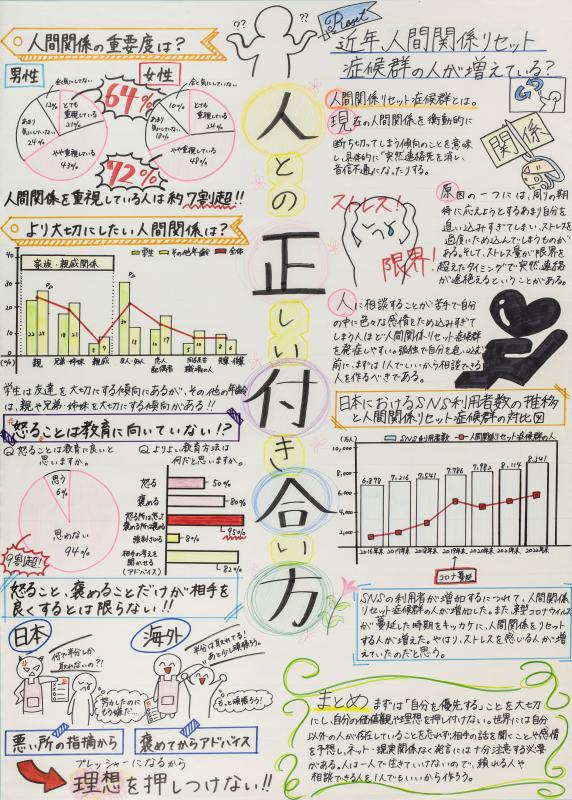 人との正しい付き合い方
?? ??
人間関係の重要度は?
男性
女性
64%
72%
12%
あまり
気にしていない
24%
とても
重視している
21%
やや重視している
43%
10%
あまり
気にしていない
18%
とても
重視している
24%
やや重視している
48%
人間関係を重視している人は約7割超!!
より大切にしたい人間関係は?
学生 その他年齢 全体
家族・親戚関係
40
30
20
10
0
(%)
親
兄弟・姉妹
親戚
友人・知人
恋人
配偶者
学生は友達を大切にする傾向にあるが、その他の年齢
は、親や兄弟・姉妹を大切にする傾向がある!!
怒ることは教育に向いていない!?
Q 怒ることは教育に良いと
思いますか。
思う
6%
思わない
94%
9割超!
Q よりよい教育方法は
何だと思いますか。
怒る
50%
褒める
80%
怒る所は怒って
褒める所は褒める
95%
8%
相手の考えを
聞かせる
(アドバイス)
82%
怒ること、褒めることだけが相手を
良くするとは限らない!!
日本
何で半分しか
取れないの?!
努力したのに
もう嫌だ…
海外
半分は取れてる!
あと少し頑張ろう。
もっと頑張ろう!
悪い所の指摘から
褒めてからアドバイス
プレッシャーになるから
理想を押しつけない!!
Reset
近年、人間関係リセット
症候群の人が増えている?
人間関係リセット症候群とは。
現在の人間関係を衝動的に
断ち切ってしまう傾向のことを意味
し、具体的に「突然連絡先を消し、
音信不通になったりする。
関係
ストレス!
限界!
原因の一つには、周りの期
待に応えようとするあまり自分を
追い込みすぎてしまい、ストレスを
過度にため込んでしまうものが
ある。そして、ストレス量が限界を
超えたタイミングで突然連絡
が途絶えるということがある。
人に相談することが苦手で自分
の中に色々な感情をため込みすぎ
てしまう人ほど人間関係リセット症候群
を発症しやすい。孤独で自分を追い込む
前に、まずは1人でいいから相談できる
人を作るべきである。
日本におけるSNS利用者数の推移
と人間関係リセット症候群の対比図
(万人)
SNS利用者数 人間関係リセット症候群の人
10,000
8,000
6,000
4,000
2,000
6,878
7,216
7,541
7,786
7,982
8,114
8,241
2016年末
2017年末
2018年末
2019年末
2020年末
2021年末
2022年末
コロナ蔓延
SNSの利用者が増加するにつれて、人間関係
リセット症候群の人が増加した。また、新型コロナウイルス
が蔓延した時期をキッカケに、人間関係をリセット
する人が増えた。やはり、ストレスを感じる人が増え
ていたのだと思う。
まとめ まずは「自分を優先する」ことを大切
にし、自分の価値観や理想を押し付けない。世界には自分
以外の人が存在していることをためらず相手の話を聞くことや感情
を予想し、ネット・現実関係なく発言には十分注意する必要
がある。人は一人で生きていけないので、頼れる人や
相談できる人を1人でもいいから作ろう。